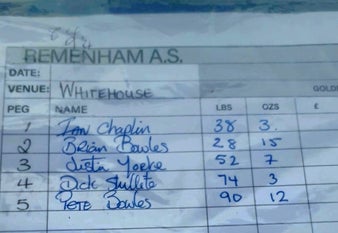 REMENHAM A.S.
DATE:
VENUE: WHITEHOUSE GOLD
PEG NAME LBS OZS £
1 Ian Chaplin 38 3.
2 Brian Bowles 28 15
3 Justin Yorke 52 7
4 Dick 74 3
5 PETE Bowles 90 12